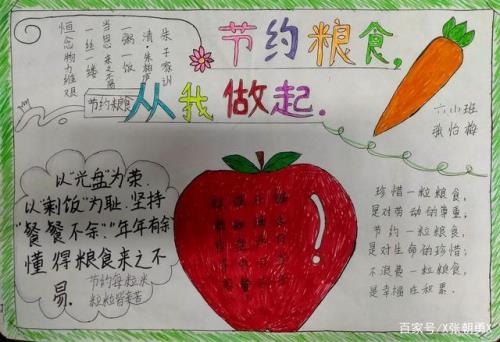 节约粮食,
从我做起.
朱子家训
清·朱柏庐
一粥一饭
当思来之不易
一丝一缕
恒念物力维艰
节约粮食
六小班
张怡梅
以“光盘”为荣.
以“剩饭”为耻.坚持
“餐餐不余”“年年有余”
懂得粮食来之不
易.
节约每粒米
粒粒皆辛苦
珍惜一粒粮食,
是对劳动的尊重,
节约一粒粮食,
是对生命的珍惜;
不浪费一粒粮食,
是幸福在积累.
百家号/X张朝勇X